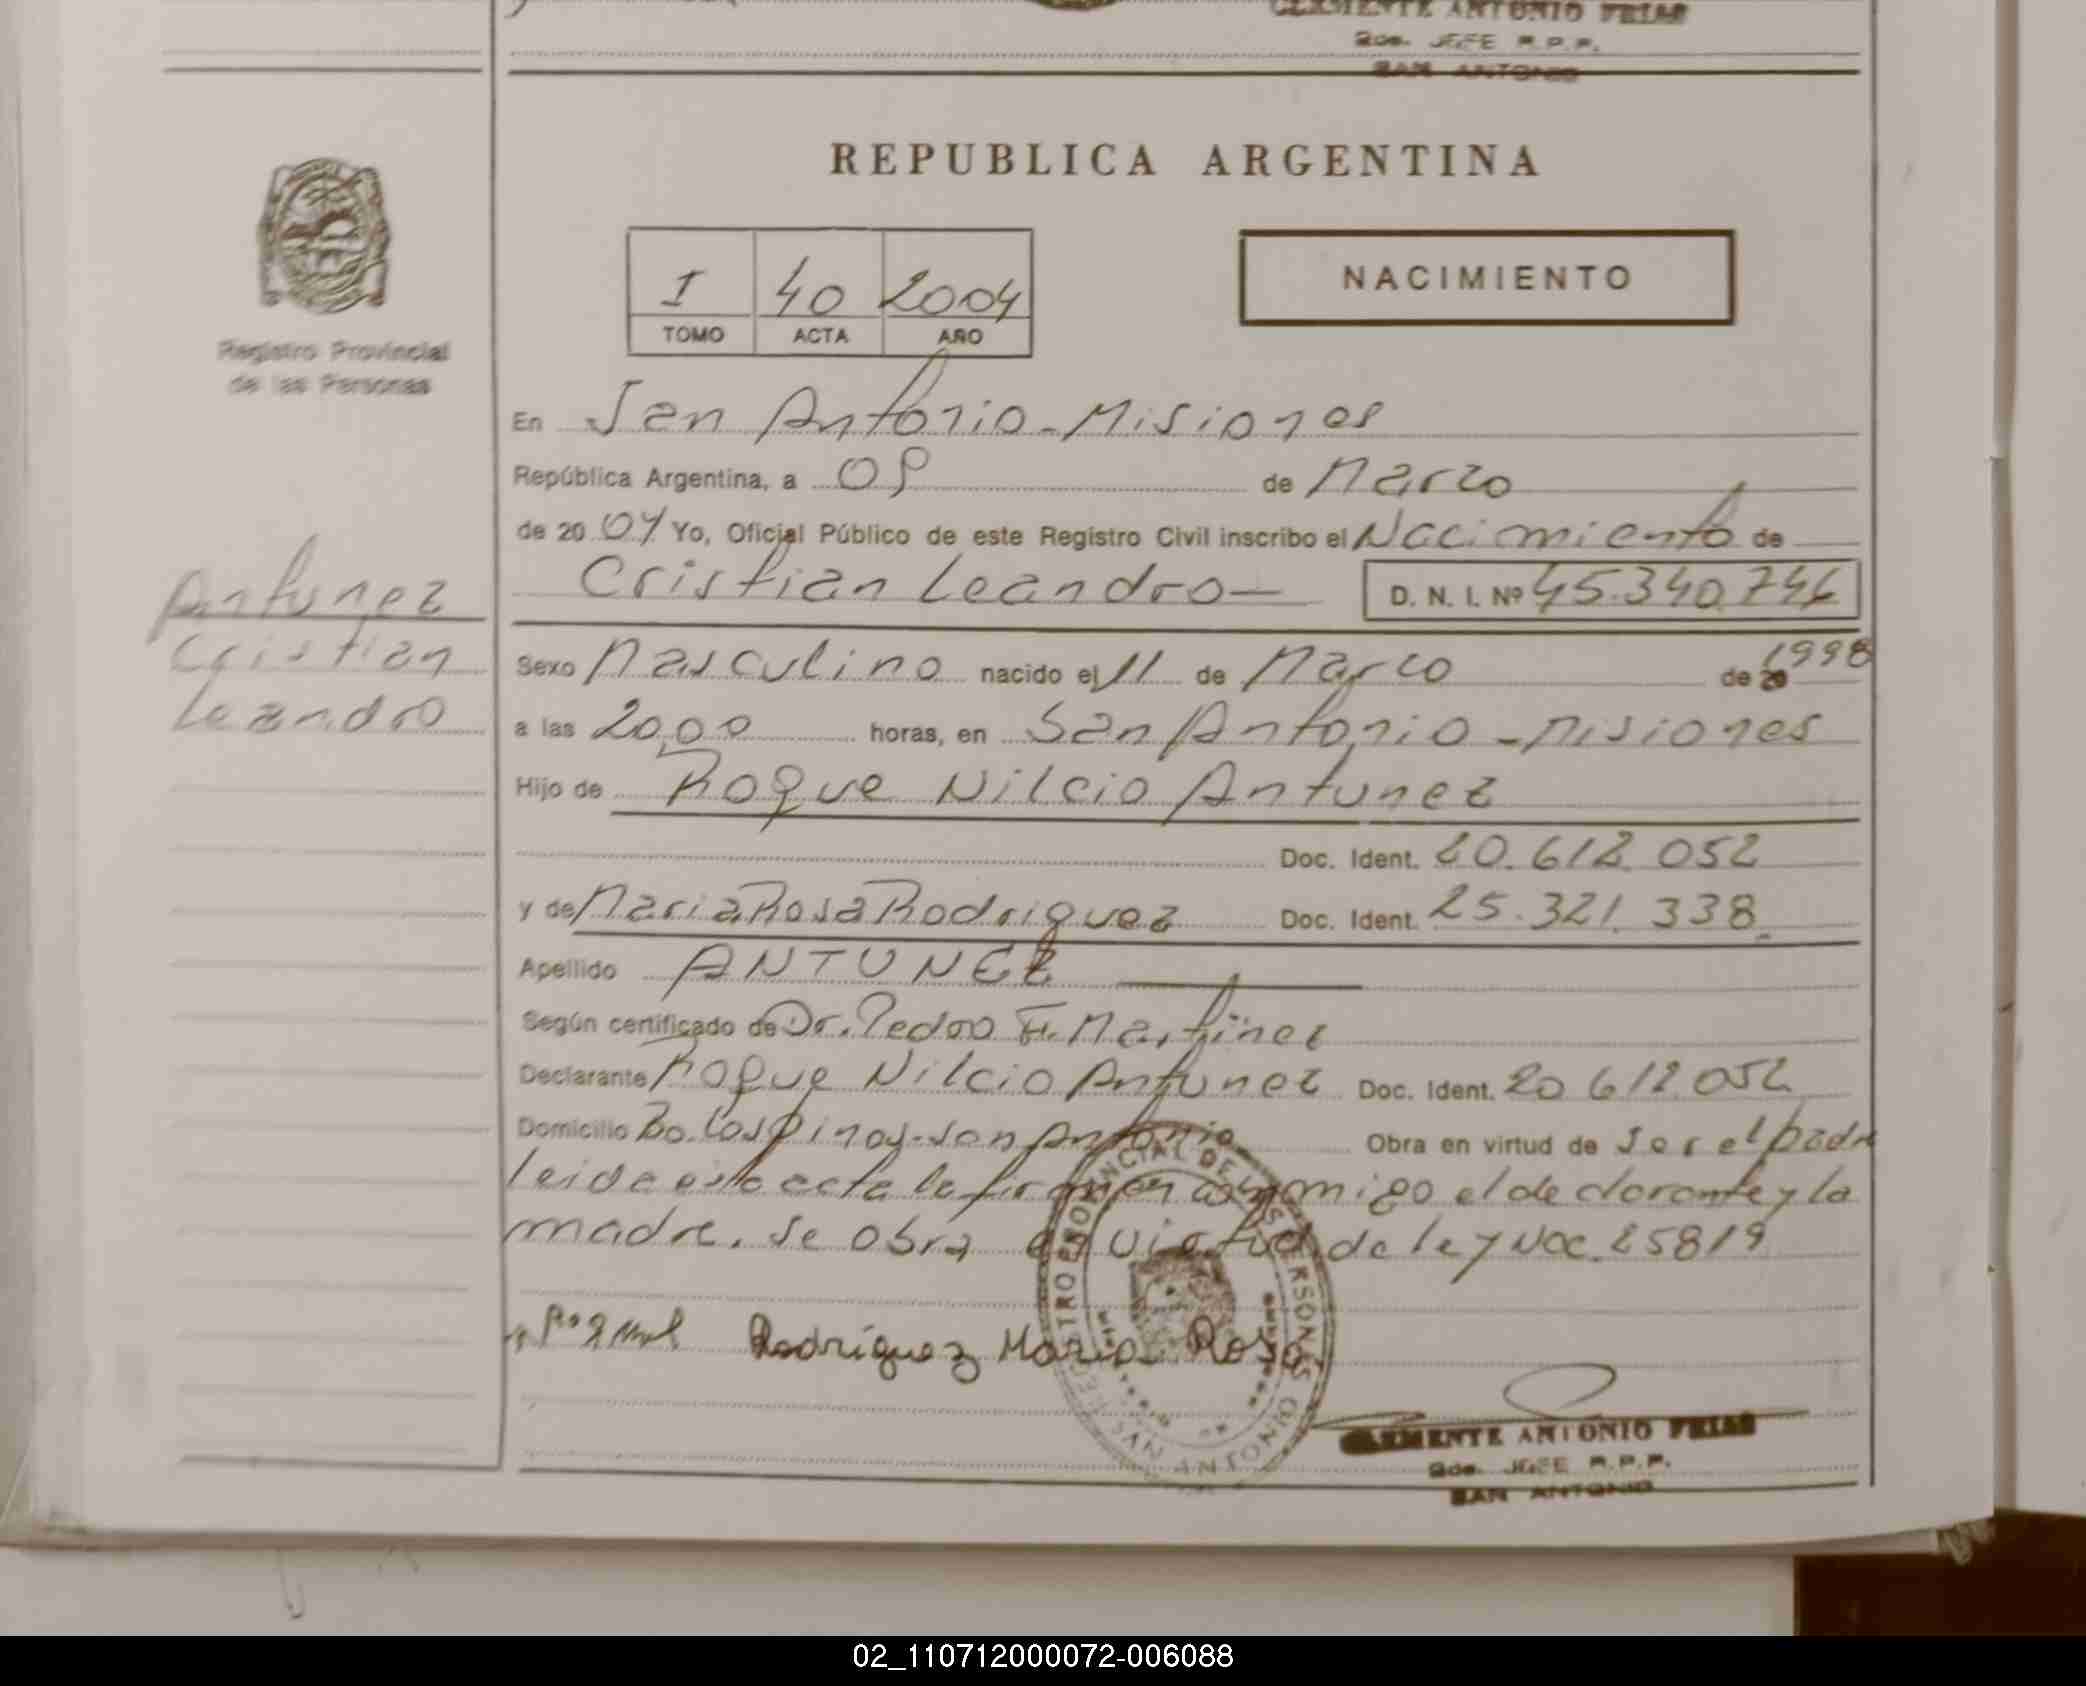 CLEMENTE ANTONIO FRIAS
JEFE R.P.P.
SAN ANTONIO
REPUBLICA ARGENTINA
I 40 2004
TOMO ACTA AÑO
NACIMIENTO
Registro Provincial
de las Personas
En San Antonio - Misiones
República Argentina, a 08 de Marzo
de 20 04 Yo, Oficial Público de este Registro Civil inscribo el Nacimiento de
Cristian Leandro — D. N. I. Nº 45.340.746
Antunez
Cristian
Leandro
Sexo Masculino nacido el 11 de Marzo de 20 1998
a las 20,00 horas, en San Antonio - Misiones
Hijo de Roque Nilcio Antunez
Doc. Ident. 20.612.052
y de Maria Rosa Rodriguez Doc. Ident. 25.321.338
Apellido ANTUNEZ
Según certificado de Dr. Pedro F. Martinez
Declarante Roque Nilcio Antunez Doc. Ident. 20.612.052
Domicilio Bo. Los Pinos - San Antonio Obra en virtud de ser el padre
leida esta acta la firman conmigo el declarante y la
madre. Se obra en virtud de ley Nac. 25819
Rodriguez Maria Rosa
REGISTRO PROVINCIAL DE LAS PERSONAS
SAN ANTONIO
CLEMENTE ANTONIO FRIAS
JEFE R.P.P.
SAN ANTONIO
02_110712000072-006088